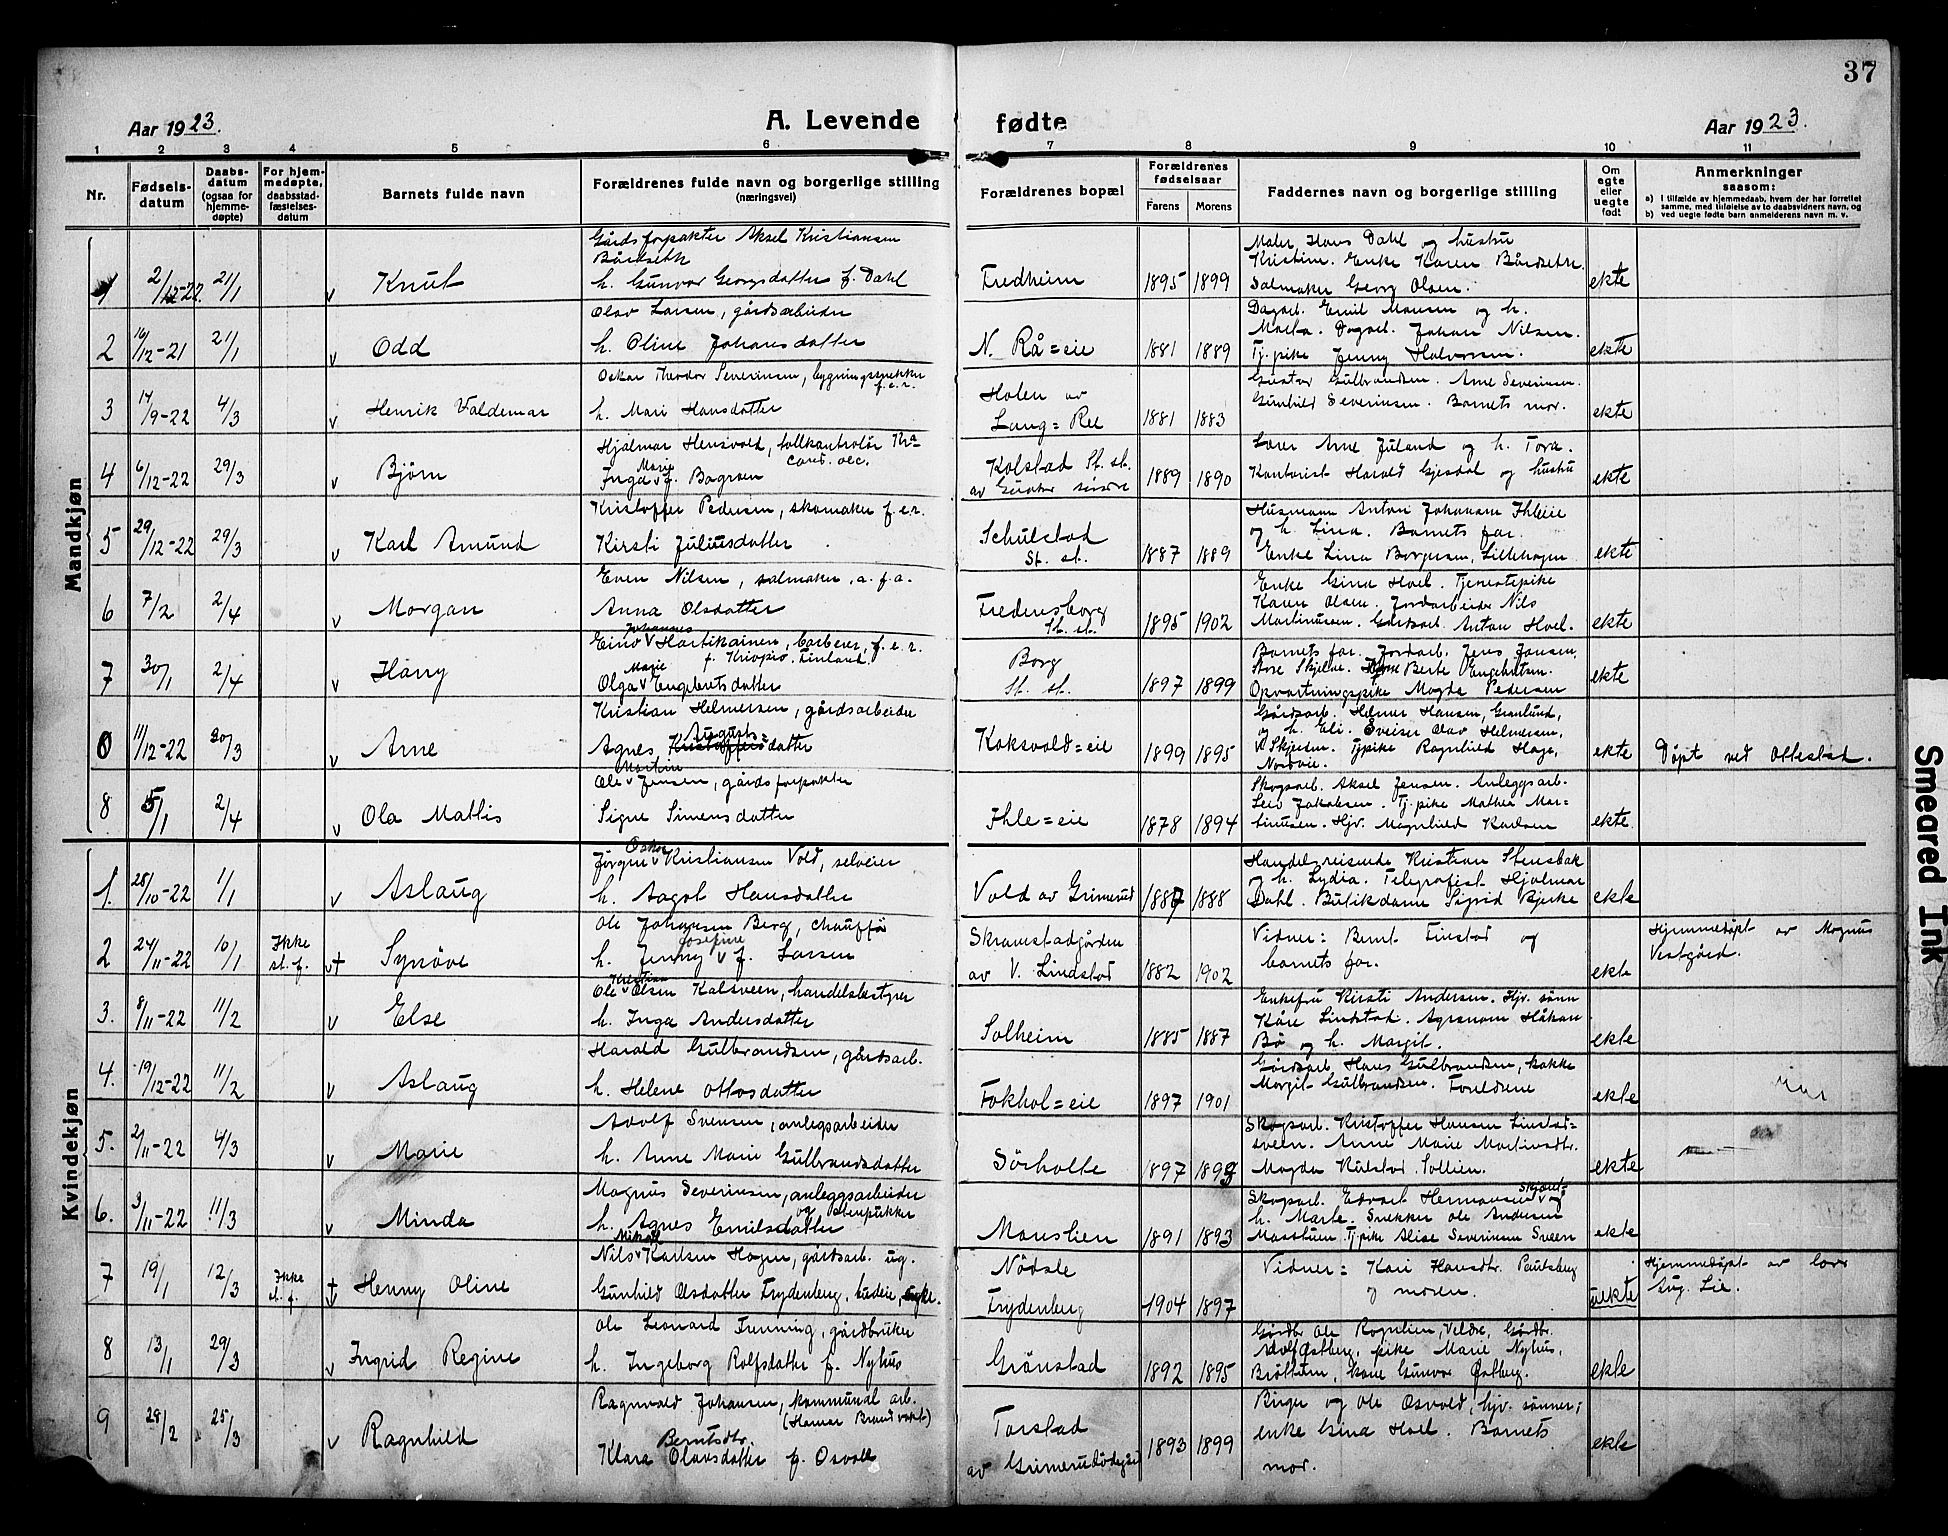 37
Aar 1923.
A. Levende fødte
Aar 1923.
1 2 3 4 5 6 7 8 9 10 11
Nr.
Fødsels-
datum
Daabs-
datum
(ogsaa for
hjemme-
døpte)
For hjem-
medøpte,
daabsstad-
fæstelses-
datum
Barnets fulde navn
Forældrenes fulde navn og borgerlige stilling
(næringsvei)
Forældrenes bopæl
Forældrenes
fødselsaar
Farens Morens
Faddernes navn og borgerlige stilling
Om
egte
eller
uegte
født
Anmerkninger
saasom:
a) I tilfælde av hjemmedaab, hvem der har forrettet
samme, med tilføielse av to daabsvidners navn, og
b) ved uegte fødte barn anmelderens navn m. v.
Mandkjøn
1 2/12-22. 21/1 v Knut
Gårdsforpakter Aksel Kristiansen
Bårdseth
h. Gunvor Georgsdatter f. Dahl
Fredheim 1895 1899
Maler Hans Dahl og hustru
Kristine. Enke Karen Bårdseth.
Salmaker Georg Olsen.
ekte
2 16/12-21 21/1 v Odd
Olav Larsen, gårdsarbeider
h. Oline Johansdatter
N. Rå=eie 1881 1889
Dagarb. Emil Monsen og h.
Marta. Dagarb. Johan Nilsen.
Tj.pike Jenny Halvorsen.
ekte
3 14/9-22 4/3 v Henrik Valdemar
Oskar Theodor Severinsen, bygningssnekker
f.e.r.
h. Mari Hansdatter
Holen av
Lang=Ree 1881 1883
Gustav Gulbrandsen. Arne Severinsen.
Gunhild Severinsen. Barnets mor.
ekte
4 6/12-22 29/3 v Bjørn
Hjalmar Hensvold, tollkontrolør Kra
cand. oec.
Inga Marie f. Bagroen
Kolstad St. st.
1889 1890
Lærer Arne Juland og h. Tora.
Kontorist Harald Gjesdal og hustru
ekte
5 29/12-22 29/3 v Karl Amund
Kristoffer Pedersen, skomaker f.e.r.
Kirsti Juliusdatter
Schulstad
St. st. 1887 1889
Husmann Anton Johansen Ihleeie
og h. Lina. Barnets far.
Enke Lina Borgersen, Lillehagen
ekte
6 7/2 2/4 v Morgan
Even Nilsen, salmaker, a.f.a.
Anna Olsdatter
Fredensborg
St. st. 1895 1902
Enke Gina Hoel. Tjenestepike
Karen Olsen. Jordarbeider Nils
Martinussen. Gårdsarb. Anton Hoel.
ekte
7 30/1 2/4 v Harry
Eino Johannes Hartikainen, barberer, f.e.r.
f. Kuopio. Finland
Olga Marie Engebretsdatter
Borg
St. st. 1897 1899
Barnets far. Jordarb. Jens Jensen,
Store Skjelve. Berte Engebretsen.
Opvartningspike Magda Pedersen
ekte
0 11/12-22 30/3 v Arne
Kristian Helmersen, gårdsarbeider
Agnes Kristoffersdatter Augusts=
Koksvold=eie 1899 1895
Gårdsarb. Helmer Hansen, Granlund,
og h. Eli. Sveiser Olav Helmersen,
V. Skjesem. Tjpike Ragnhild Hage,
Nordvie.
ekte Døpt ved Ottestad.
8 5/1 2/4 v Ola Mattis
Ole Martin Jensen, gårdsforpakter
Signe Simensdatter
Ihle=eie 1878 1894
Skogsarb. Aksel Jensen. Anleggsarb.
Leiv Jakobsen. Tj.pike Mathea Mar=
tinussen. Hjv. Magnhild Karlsen
ekte.
Kvindekjøn
1. 28/10-22 1/1 v Aslaug
Jørgen Oskar Kristiansen Vold, selveier
h. Aagot Hansdatter
Vold av Grimerud 1887 1888
Handelsreisende Kristian Stensbak
og h. Lydia. Telegrafist Hjalmar
Dahl. Butikdame Sigrid Bjerke
ekte
2 24/11-22 10/1 Ikke
st. f. v† Synøve
Ole Johansen Berg, chauffør
h. Jenny Josefine f. Larsen
Skramstadgården
av V. Lindstad 1882 1902
Vidner: Bernt Finstad og
barnets far.
ekte
Hjemmedøpt av Magnus
Vestgård.
3. 8/11-22 11/2 v Else
Ole Kristian Olsen Kalsveen, handelsbestyrer
h. Inga Andersdatter
Solheim 1885 1887
Enkefru Kirsti Andersen. Hjv. sønn
Kåre Lindstad. Agronom Håkon
Bø og h. Margit.
ekte
4. 19/12-22 11/2 v Aslaug
Harald Gulbrandsen, gårdsarb.
h. Helene Ottosdatter
Fokhol=eie 1897 1901
Gårdsarb. Hans Gulbrandsen, kokke
Margit Gulbrandsen. Foreldrene
ekte
5. 2/11-22 4/3 v Marie
Adolf Svensen, anlegsarbeider
h. Anne Marie Gulbrandsdatter
Sørholte 1897 1899
Skogsarb. Kristoffer Hansen Linstad=
sveen. Anne Marie Martinsdtr.
Magda Rulstad. Sollien.
ekte
6. 3/11-22 11/3 v Minda
Magnus Severinsen, anleggsarbeider
og stenpukker
h. Agnes Emilsdatter
Monslien 1891 1893
Skogsarb. Edvart Hermansen og
h. Marte. Snekker Ole Andersen
Mosstuen. Tj.pike Alise Severinsen Sveen
ekte
7 19/1 12/3 Ikke
st. f. † v Henny Oline
Nils Mikael Karlsen Hagen, gårdsarb. ug.
Gunhild Olsdatter Frydenberg, budeie, enke.
Nødsle
Frydenberg 1904 1897
Vidner: Kari Hansdtr. Paulsberg
og moren.
uekte
Hjemmedøpt av lærer
Aug. Lie.
8 13/1 29/3 v Ingrid Regine
Ole Leonard Frenning, gårdbruker
h. Ingeborg Rolfsdatter f. Nyhus
Grønstad 1892 1895
Gårdbr. Ole Rognlien, Veldre, Gårdbr.
Adolf Østberg, pike Marie Nyhus,
Brøttum, kone Gunvor Østberg.
ekte
9 28/2 25/3 v Ragnhild
Ragnvald Johansen, kommunal arb.
(Hamar Brandvesen)
Klara Berntsdtr. Olavsdatter f. Osvold
Torstad
av Grimerudødegård 1893 1899
Birger og Ole Osvold, hjv. sønner,
enke Gina Hoel. Barnets
mor.
ekte
Smeared Ink